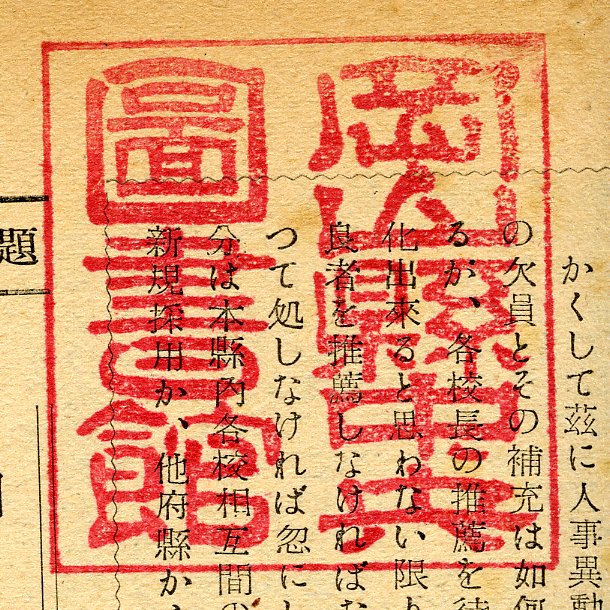 岡山縣中央
圖書館
かくして茲に人事異動
の欠員とその補充は如何
るが、各校長の推薦を
化出來ると思わない限り
良者を推薦しなければな
つて処しなければ忽にし
分は本縣内各校相互間の
新規採用か、他府縣か
題